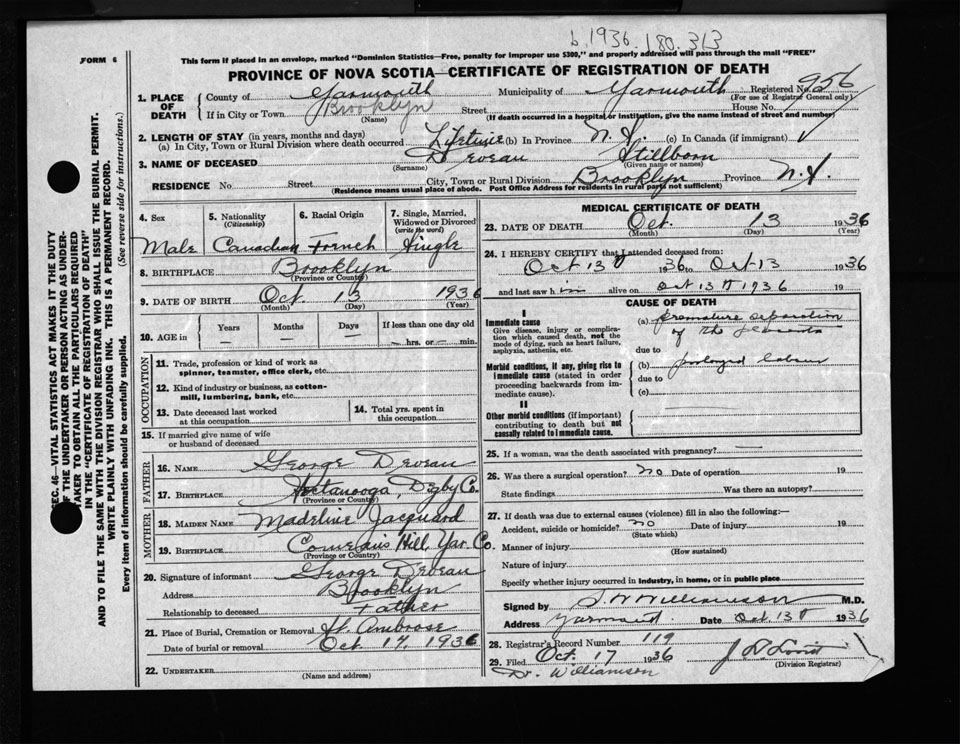 b. 1936 180.313
FORM 6
This form if placed in an envelope, marked "Dominion Statistics—Free, penalty for improper use $300," and properly addressed will pass through the mail "FREE"
PROVINCE OF NOVA SCOTIA—CERTIFICATE OF REGISTRATION OF DEATH
1. PLACE OF DEATH
County of Yarmouth Municipality of Yarmouth Registered No. 956
(For use of Registrar General only)
If in City or Town Brooklyn Street House No.
(Name) (If death occurred in a hospital or institution, give the name instead of street and number)
2. LENGTH OF STAY (in years, months and days)
(a) In City, Town or Rural Division where death occurred Lifetime (b) In Province N.S. (c) In Canada (if immigrant)
3. NAME OF DECEASED Deveau Stillborn
(Surname) (Given name or names)
RESIDENCE No. Street City, Town or Rural Division Brooklyn Province N.S.
(Residence means usual place of abode. Post Office Address for residents in rural parts not sufficient)
4. Sex
Male
5. Nationality
(Citizenship)
Canadian
6. Racial Origin
French
7. Single, Married, Widowed or Divorced
(write the word)
Single
8. BIRTHPLACE Brooklyn
(Province or Country)
9. DATE OF BIRTH Oct. 13 1936
(Month) (Day) (Year)
10. AGE in Years Months Days If less than one day old
— — — — hrs. or — min.
OCCUPATION
11. Trade, profession or kind of work as
spinner, teamster, office clerk, etc.
12. Kind of industry or business, as cotton-
mill, lumbering, bank, etc.
13. Date deceased last worked
at this occupation
14. Total yrs. spent in
this occupation
15. If married give name of wife
or husband of deceased
FATHER
16. NAME George Deveau
17. BIRTHPLACE Hectanooga, Digby Co.
(Province or Country)
MOTHER
18. MAIDEN NAME Madeline Jacquard
19. BIRTHPLACE Comeau's Hill, Yar. Co.
(Province or Country)
20. Signature of informant George Deveau
Address Brooklyn
Relationship to deceased Father
21. Place of Burial, Cremation or Removal St. Ambrose
Date of burial or removal Oct. 17, 1936
22. UNDERTAKER
(Name and address)
MEDICAL CERTIFICATE OF DEATH
23. DATE OF DEATH Oct. 13 1936
(Month) (Day) (Year)
24. I HEREBY CERTIFY that I attended deceased from:
Oct 13th 1936 to Oct 13 1936
and last saw him alive on Oct 13th 1936 19
CAUSE OF DEATH
I
Immediate cause
Give disease, injury or complica-
tion which caused death, not the
mode of dying, such as heart failure,
asphyxia, asthenia, etc.
(a) premature separation
of the placenta
due to
Morbid conditions, if any, giving rise to
immediate cause (stated in order
proceeding backwards from im-
mediate cause).
(b) prolonged labour
due to
(c)
II
Other morbid conditions (if important)
contributing to death but not
causally related to immediate cause.
25. If a woman, was the death associated with pregnancy? —
26. Was there a surgical operation? no Date of operation 19
State findings Was there an autopsy?
27. If death was due to external causes (violence) fill in also the following:—
Accident, suicide or homicide? no Date of injury 19
(State which)
Manner of injury
(How sustained)
Nature of injury
Specify whether injury occurred in industry, in home, or in public place
Signed by S. W. Williamson M.D.
Address Yarmouth Date Oct 13th 1936
28. Registrar's Record Number 119
29. Filed Oct. 17 1936
(Division Registrar)
Dr. Williamson
SEC. 46—VITAL STATISTICS ACT MAKES IT THE DUTY
OF THE UNDERTAKER OR PERSON ACTING AS UNDER-
TAKER TO OBTAIN ALL THE PARTICULARS REQUIRED
IN THE "CERTIFICATE OF REGISTRATION OF DEATH"
AND TO FILE THE SAME WITH THE DIVISION REGISTRAR WHO SHALL ISSUE THE BURIAL PERMIT.
WRITE PLAINLY WITH UNFADING INK. THIS IS A PERMANENT RECORD.
Every item of information should be carefully supplied. (See reverse side for instructions.)